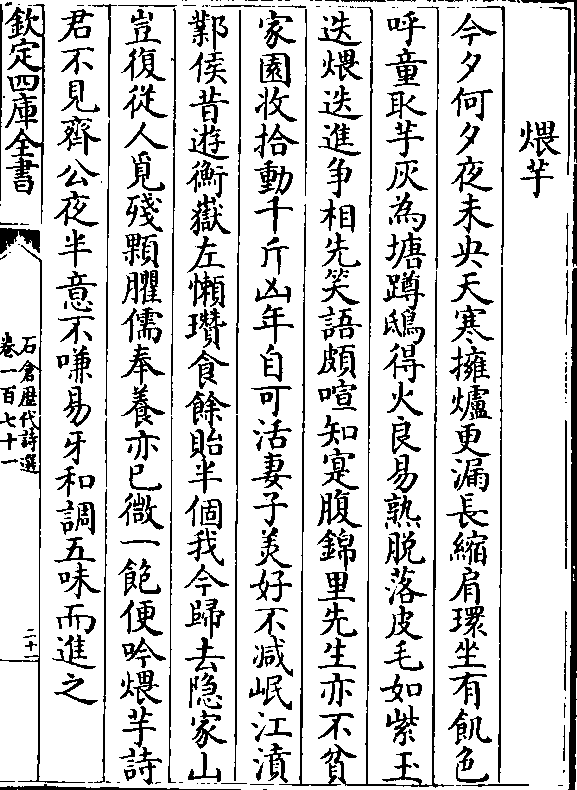 煨芋
今夕何夕夜未央天寒擁爐更漏長縮肩環坐有飢色
呼童取芋灰為塘蹲鴟得火良易熟脱落皮毛如紫玉
迭煨迭進争相先笑語頗喧知寔腹錦里先生亦不貧
家園收拾動千斤凶年自可活妻子美好不減岷江濆
鄴侯昔遊衡嶽左懶瓚食餘貽半個我今歸去隐家山
豈復從人覓殘顆臞儒奉養亦已微一飽便吟煨芋詩
君不見齊公夜半意不嗛易牙和調五味而進之
欽定四庫全書
石倉歷代詩選
卷一百七十一
二十一